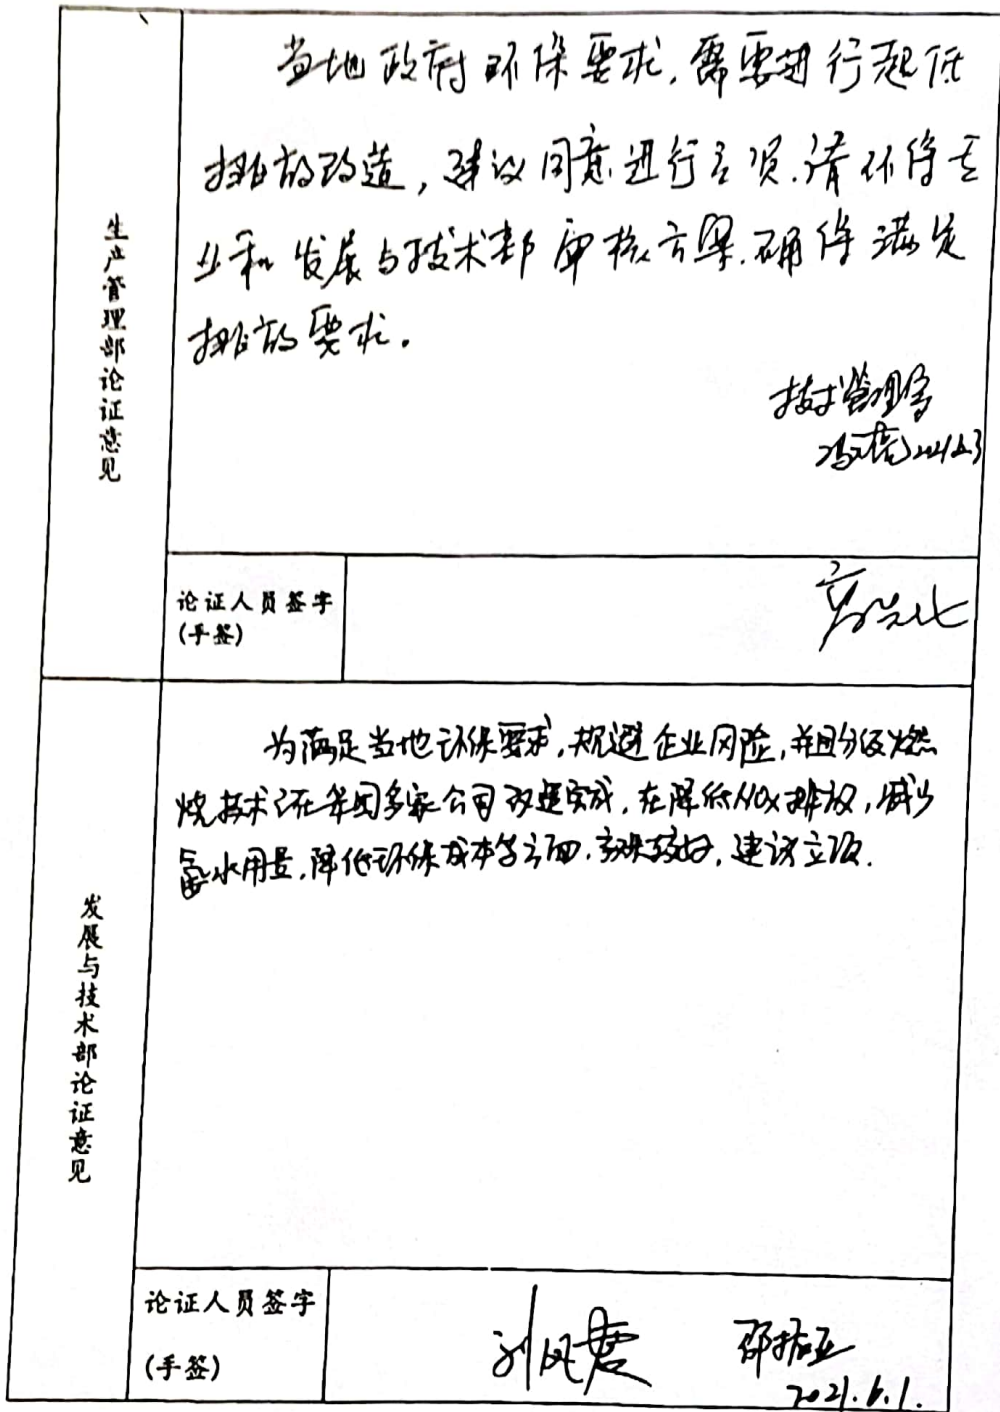 生产管理部论证意见
当地政府环保要求,需要进行超低
排放改造,建议同意进行立项.请环保专
业和发展与技术部审核方案.确保满足
排放要求。
技术管理部
论证人员签字
(手签)
发展与技术部论证意见
为满足当地环保要求,规避企业风险,并且分级燃
烧技术已在集团多家公司改造完成,在降低NOx排放,减少
氨水用量,降低环保成本等方面,效果较好,建议立项.
论证人员签字
(手签)
刘凤君 邵振亚
2021.6.1.